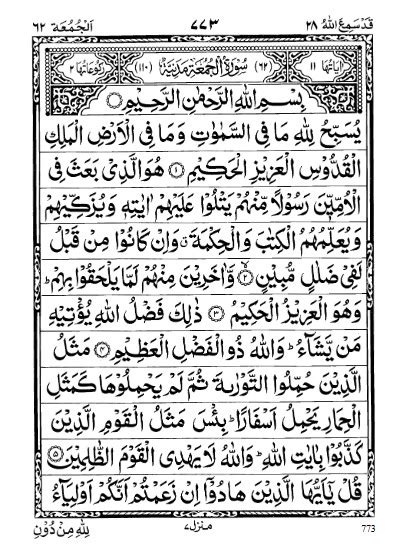 قَدْسَمِعَ اللّٰهُ ٢٨ ٧٧٣ اَلْجُمُعَة ٦٢
اٰیَاتُهَا ١١ (٦٢) سُوْرَةُ الْجُمُعَةِ مَدَنِیَّةٌ (١١٠) رُكُوْعَاتُهَا ٢
بِسْمِ اللّٰهِ الرَّحْمٰنِ الرَّحِیْمِ
یُسَبِّحُ لِلّٰهِ مَا فِی السَّمٰوٰتِ وَمَا فِی الْاَرْضِ الْمَلِكِ
الْقُدُّوْسِ الْعَزِیْزِ الْحَكِیْمِ ﴿١﴾ هُوَ الَّذِیْ بَعَثَ فِی
الْاُمِّیّٖنَ رَسُوْلًا مِّنْهُمْ یَتْلُوْا عَلَیْهِمْ اٰیٰتِهٖ وَیُزَكِّیْهِمْ
وَیُعَلِّمُهُمُ الْكِتٰبَ وَالْحِكْمَةَ ۗ وَاِنْ كَانُوْا مِنْ قَبْلُ
لَفِیْ ضَلٰلٍ مُّبِیْنٍ ﴿٢﴾ وَّاٰخَرِیْنَ مِنْهُمْ لَمَّا یَلْحَقُوْا بِهِمْ ؕ
وَهُوَ الْعَزِیْزُ الْحَكِیْمُ ﴿٣﴾ ذٰلِكَ فَضْلُ اللّٰهِ یُؤْتِیْهِ
مَنْ یَّشَآءُ ؕ وَاللّٰهُ ذُو الْفَضْلِ الْعَظِیْمِ ﴿٤﴾ مَثَلُ
الَّذِیْنَ حُمِّلُوا التَّوْرٰىةَ ثُمَّ لَمْ یَحْمِلُوْهَا كَمَثَلِ
الْحِمَارِ یَحْمِلُ اَسْفَارًا ؕ بِئْسَ مَثَلُ الْقَوْمِ الَّذِیْنَ
كَذَّبُوْا بِاٰیٰتِ اللّٰهِ ؕ وَاللّٰهُ لَا یَهْدِی الْقَوْمَ الظّٰلِمِیْنَ ﴿٥﴾
قُلْ یٰۤاَیُّهَا الَّذِیْنَ هَادُوْۤا اِنْ زَعَمْتُمْ اَنَّكُمْ اَوْلِیَآءُ
773 منزل ٧ لِلّٰهِ مِنْ دُوْنِ